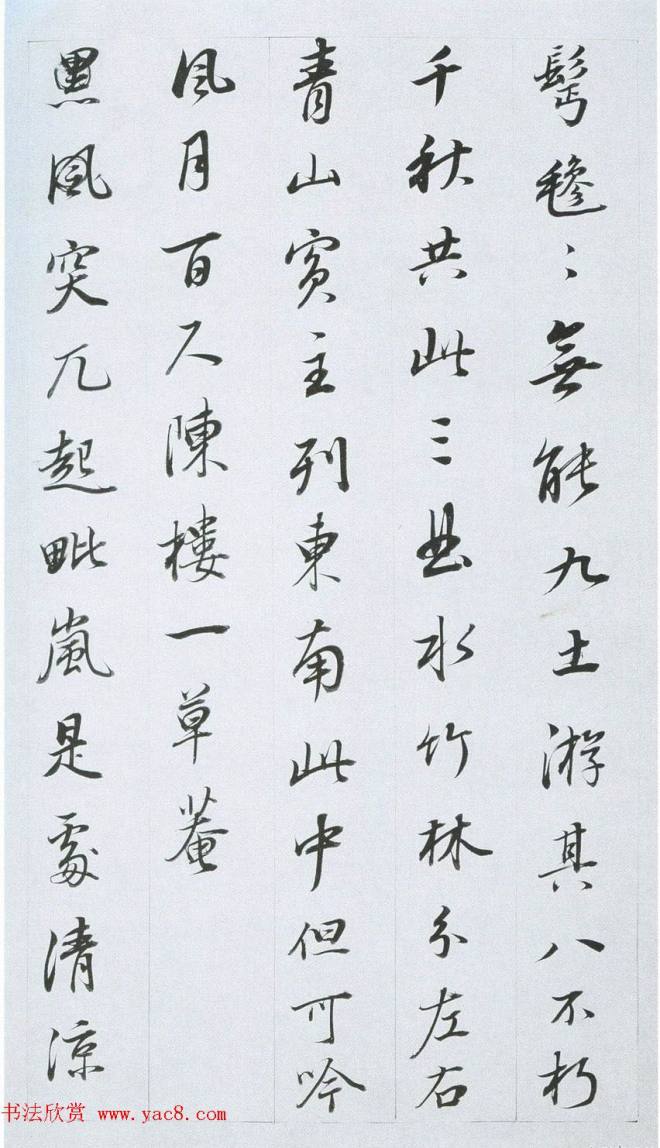 鬓毵〻無能九土游其八不朽
千秋共此三曲水竹林分左右
青山賓主列東南此中但可吟
风月百尺陳樓一草菴
黑風突兀起毗嵐是處清涼
书法欣赏 www.yac8.com